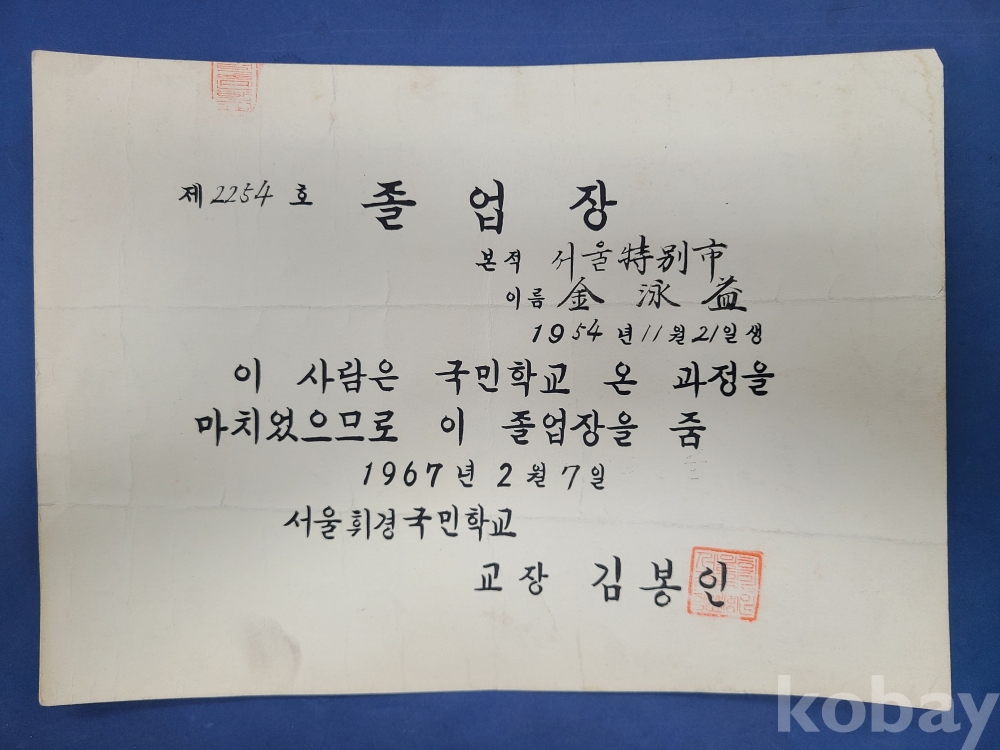 제2254호 졸업장
본적 서울特別市
이름 金泳益
1954년11월21일생
이 사람은 국민학교 온 과정을
마치었으므로 이 졸업장을 줌
1967년 2월 7일
서울휘경국민학교
교장 김봉인
kobay